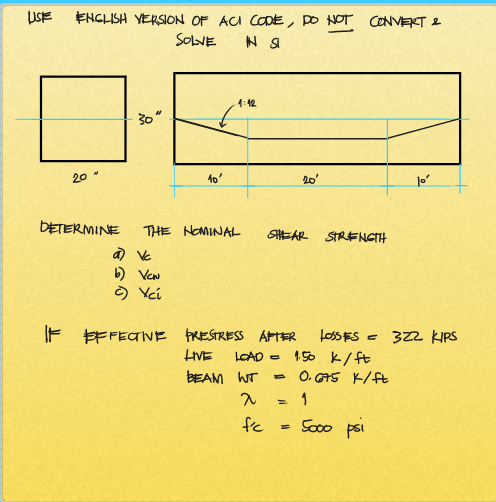 USE ENGLISH VERSION OF ACI CODE, DO NOT CONVERT &
SOLVE IN SI
1:12
30"
20"
10'
20'
10'
DETERMINE THE NOMINAL SHEAR STRENGTH
a) Vc
b) Vcw
c) Vci
IF EFFECTIVE PRESTRESS AFTER LOSSES = 322 KIPS
LIVE LOAD = 1.50 K/ft
BEAM WT = 0.675 K/ft
λ = 1
f'c = 5000 psi